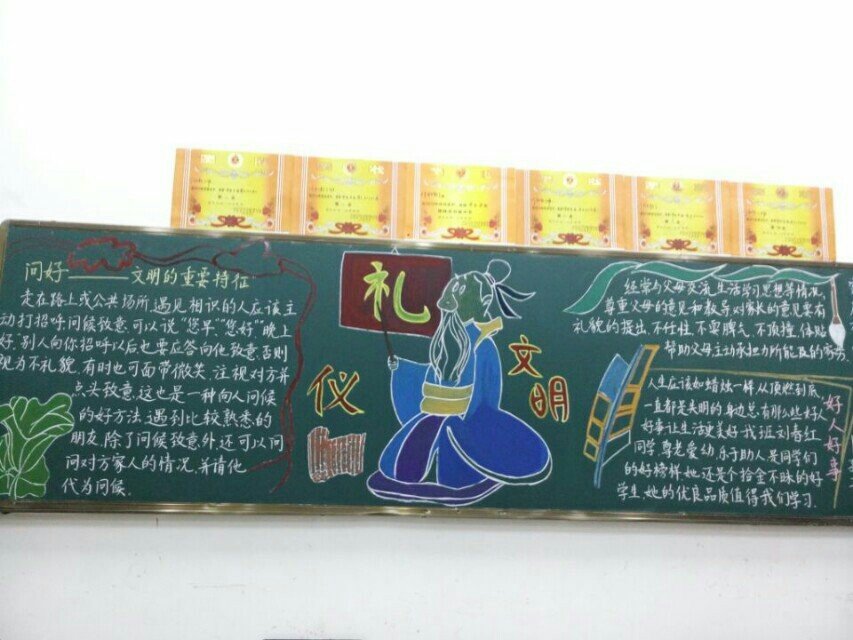 问好——文明的重要特征
走在路上或公共场所遇见相识的人应该主
动打招呼问候致意.可以说"您早""您好"晚上
好.别人向你招呼以后也要应答向他致意否则
视为不礼貌.有时也可面带微笑.注视对方并
点头致意.这也是一种向人问候
的好方法.遇到比较熟悉的
朋友.除了问候致意外还可以问
问对方家人的情况.并请他
代为问候.
礼
仪
文
明
经常与父母交流生活学习思想等情况,
尊重父母的意见和教导对家长的意见要有
礼貌的提出.不任性.不耍脾气.不顶撞.体贴
帮助父母主动承担力所能及的劳务
人生应该如蜡烛一样.从顶燃到底,
一直都是光明的.身边总有那么些好人
好事让生活更美好.我班刘春红
同学.尊老爱幼.乐于助人是同学们
的好榜样.她还是个拾金不昧的好
学生.她的优良品质值得我们学习.
好人好事